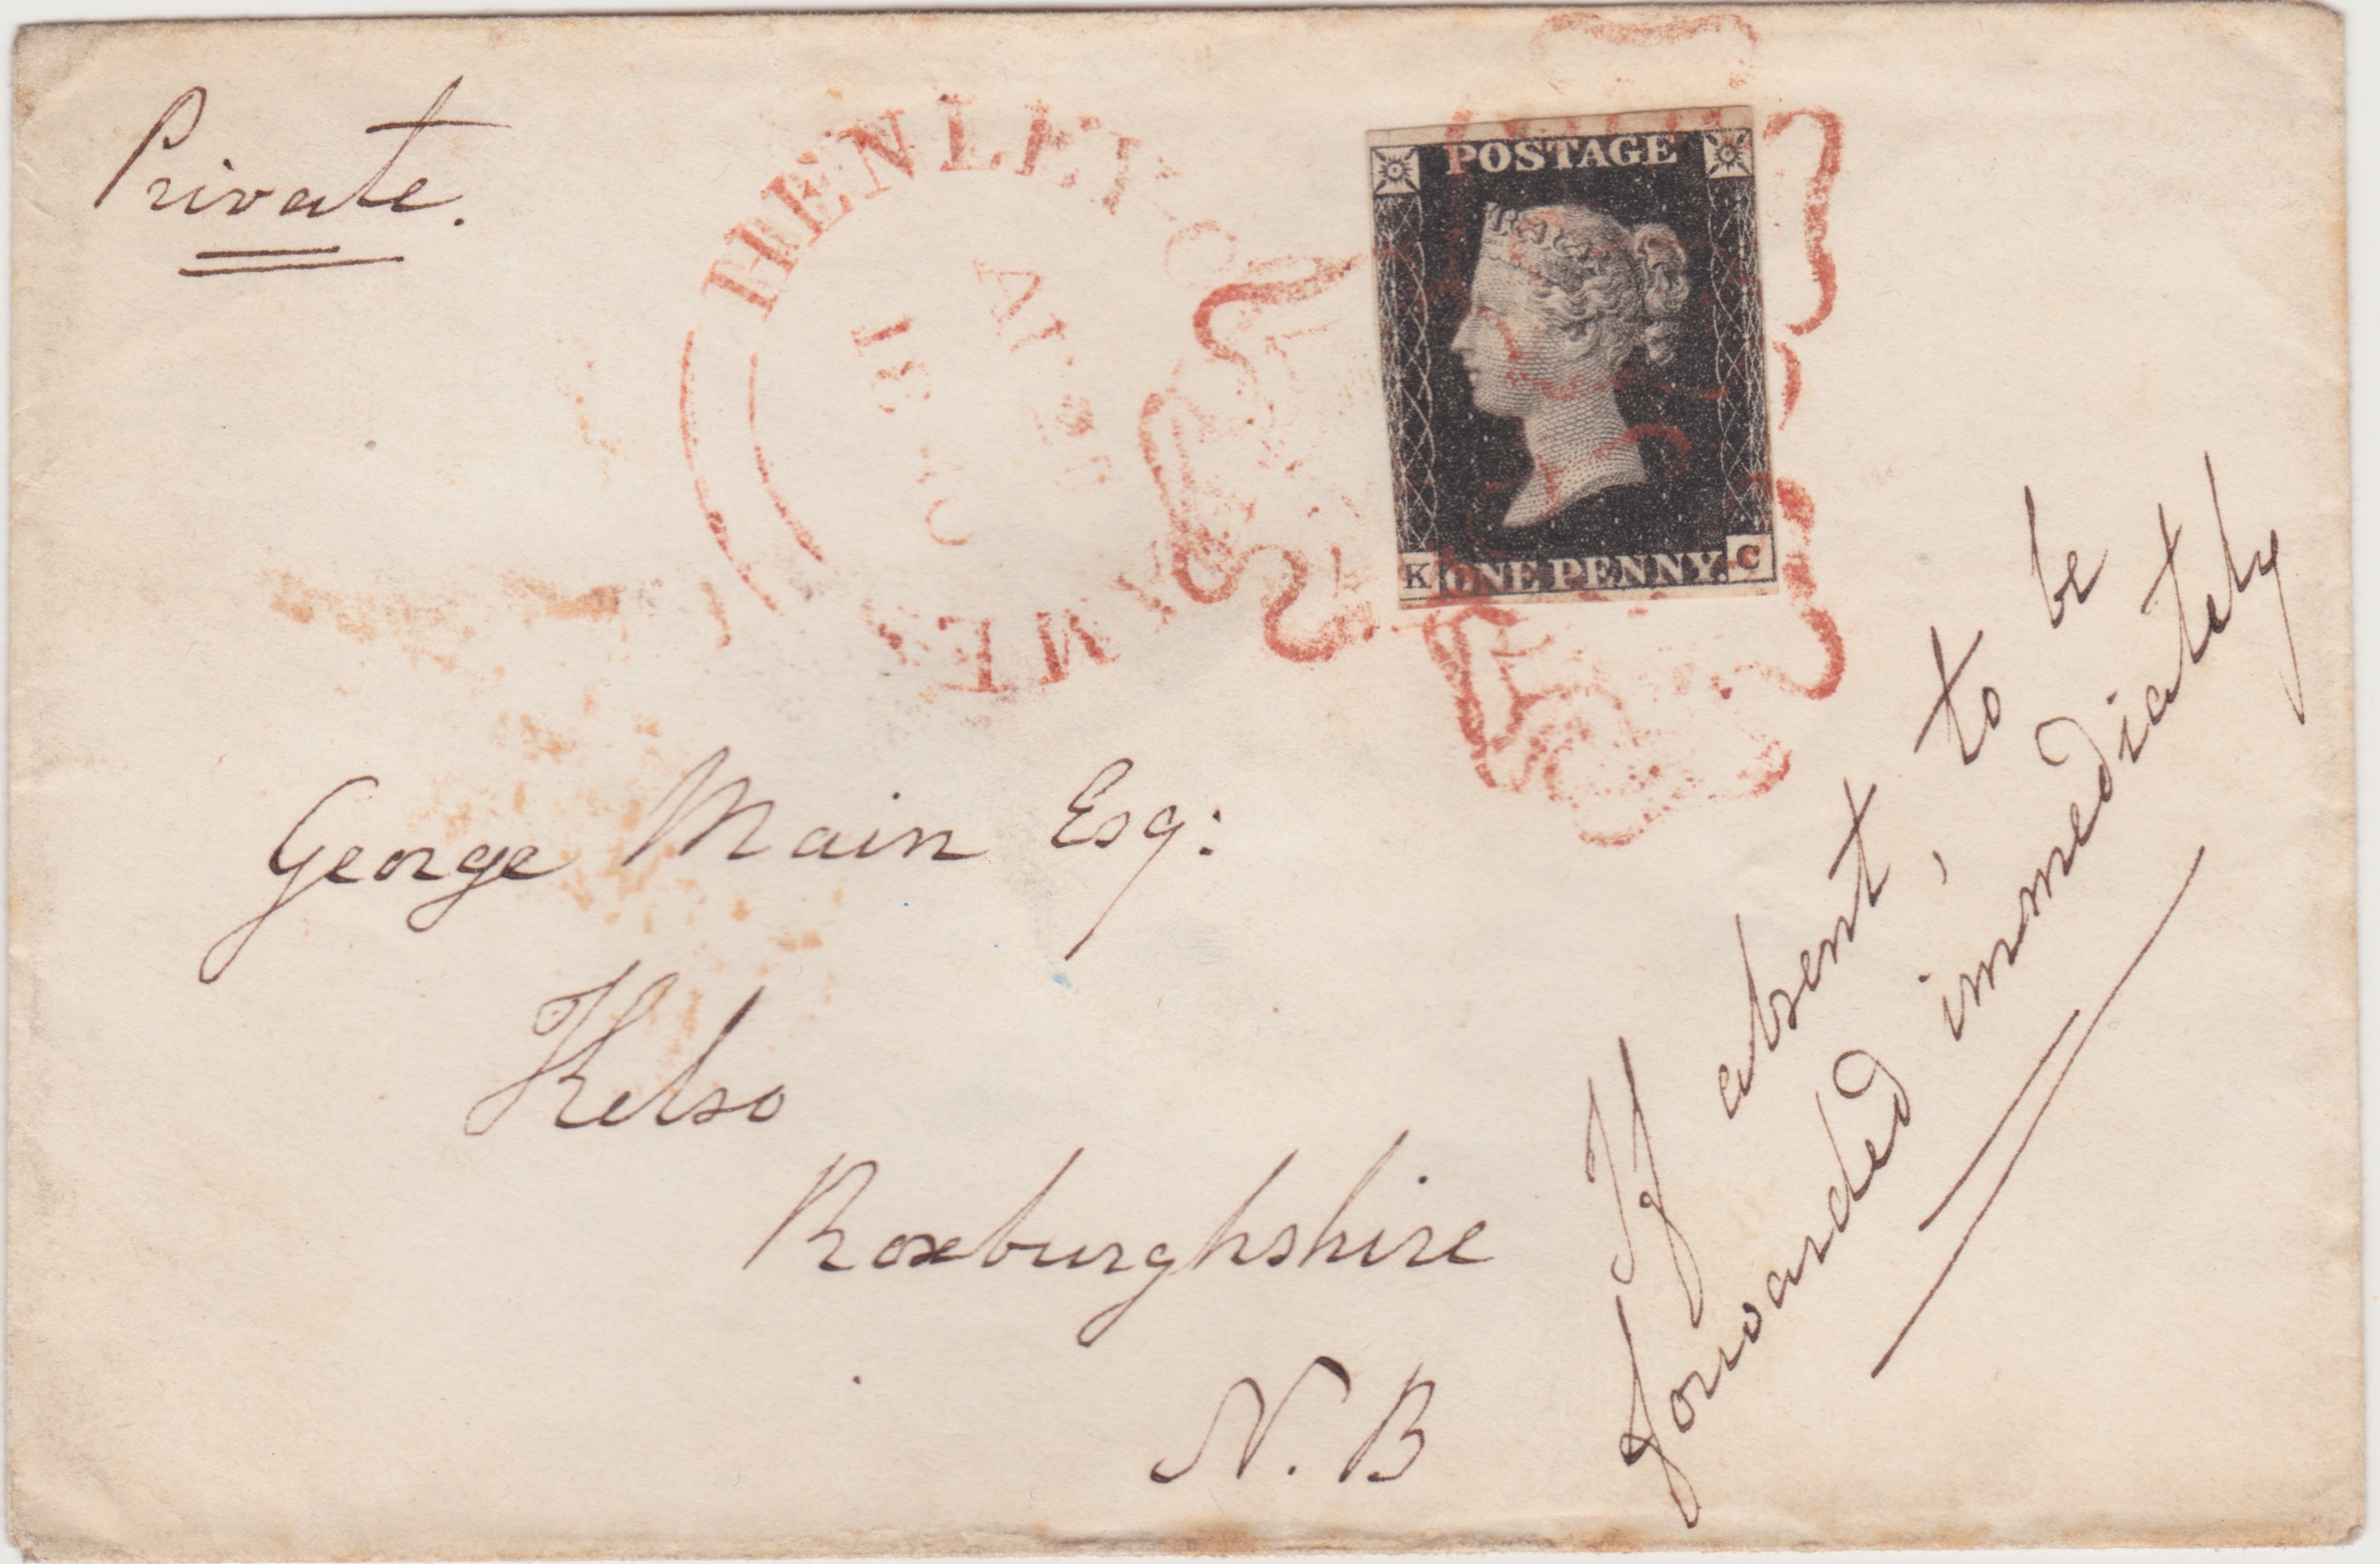 Private.
HENLEY-O
POSTAGE
K ONE PENNY. C
George Main Esq:
Kelso
Roxburghshire
N. B
If absent, to be
forwarded immediately